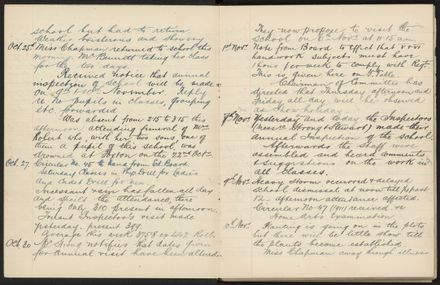 school but had to return.
Weather boisterous and showery
Oct. 25th Miss Chapman returned to school this
morning. Mr Burnett taking her class
for the two days.
Received notice that annual
inspection of school will be made
on November. Reply
re No pupils in classes, grouping
etc forwarded.
Was absent from 2.15 to 3.15 this
afternoon attending funeral of Mrs
Robert and her two sons, one of
them a pupil of this school, was
drowned at Foxton on the 22nd Oct.
Oct. 27. Circular No to hand from Ed. Board
Saturday Classes in Phys. Drill for Ladies
Also Cadet Drill for men.
Incessant rain has fallen all day
and spoils the attendance, there
being only 310 present in afternoon
Truant Inspector's visit made
yesterday, present 389.
Average this week 375.8 ex 442 Roll.
Oct 30 Mr notifies that dates given
for annual visit have been altered
They now propose to visit the
school on at 11.15 a.m.
1st Nov. Note from Board to effect that 2
handwork subjects must have
1 hour per week to comply with Regs.
This is given here in
Chairman of Committee has
directed that Thursday afternoon and
Friday all day will be observed
as Show holiday.
Nov. Yesterday and today the Inspectors
(Messrs. Strong & Stewart) made their
Annual Inspection of the school.
Afterwards the staff were
assembled and heard comments
and suggestions on the work in
all classes.
Nov. Heavy storm occurred & delayed
school dismissal at noon till past
12. Afternoon attendance affected.
Circular No 67 (1911) received re
Home Arts Examination
Nov. Planting is going on in the plots
but there will be little show till
the plants become established.
Miss Chapman away through illness